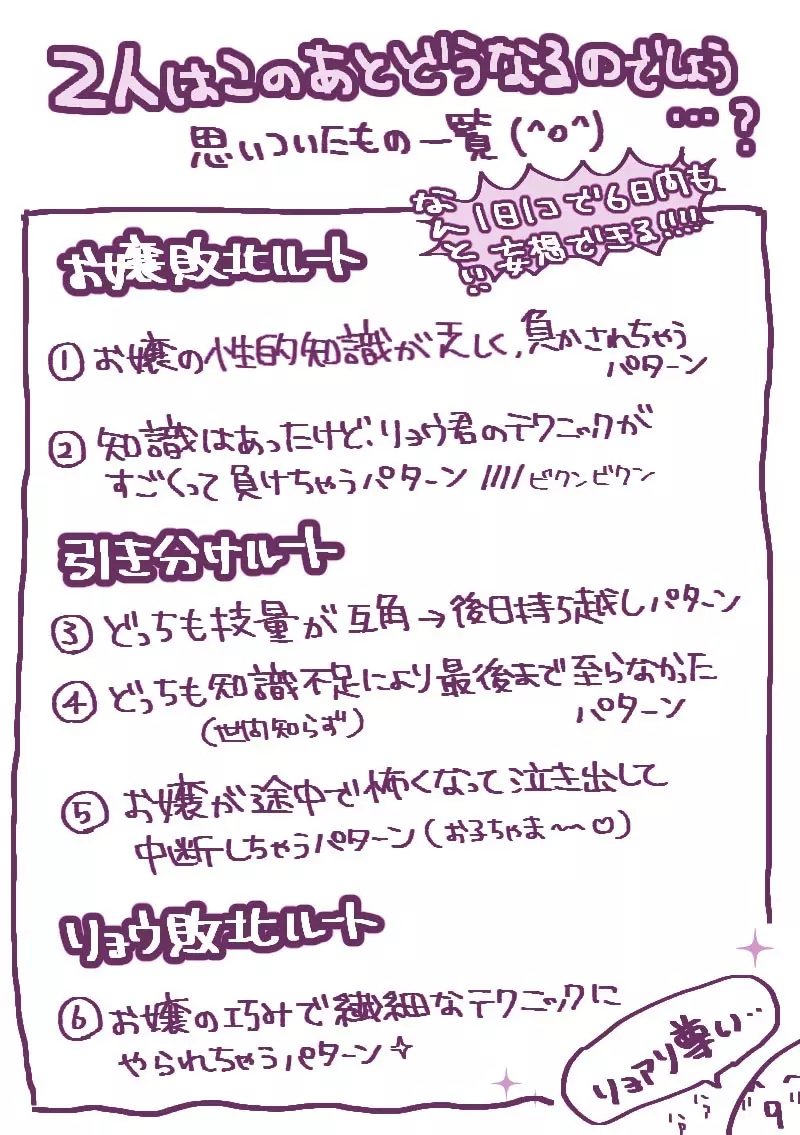 2人はこのあとどうなるのでしょう
…?
思いついたもの一覧(^o^)
なんと…!!
1日1コで6日内も
妄想できる!!!!
お嬢敗北ルート
① お嬢の性的知識が乏しく、負かされちゃう
パターン
② 知識はあったけど、リョウ君のテクニックが
すごくって負けちゃうパターン ////ビクンビクン
引き分けルート
③ どっちも技量が互角→後日持ち越しパターン
④ どっちも知識不足により最後まで至らなかった
(世間知らず) パターン
⑤ お嬢が途中で怖くなって泣き出して
中断しちゃうパターン(お子ちゃま〜〜♡)
リョウ敗北ルート
⑥ お嬢の巧みで繊細なテクニックに
やられちゃうパターン✧
リョアリ尊い…